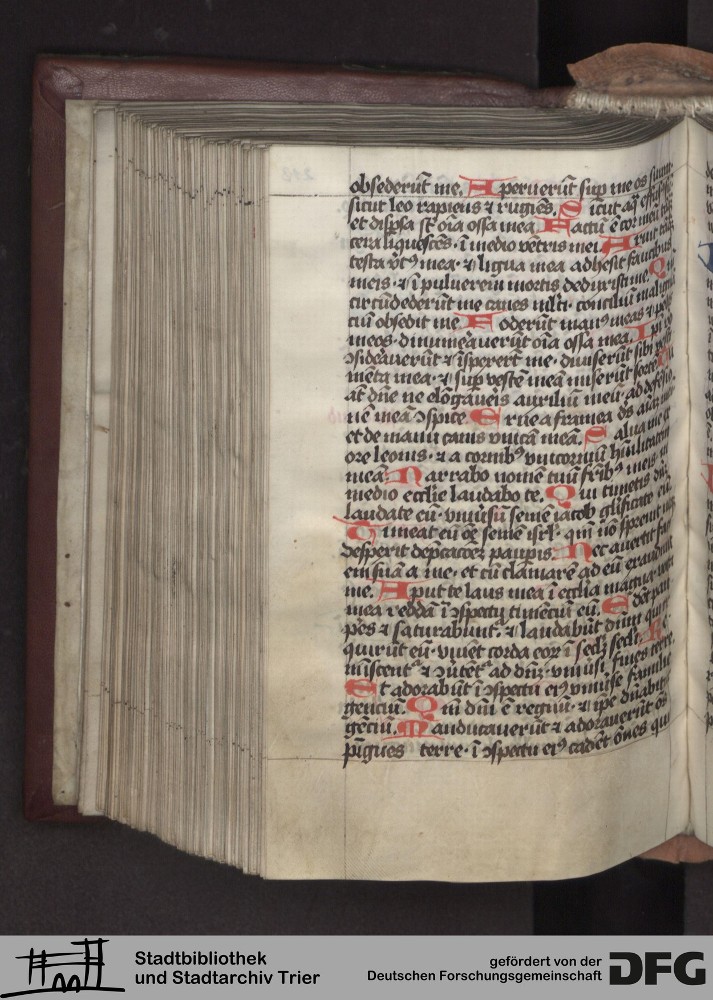 obsederūt me. Aperuerūt sup me os suum
sicut leo rapiens ⁊ rugiēs. Sicut aq̄ effusus
et dispsa st̄ oīa ossa mea Factū ē cor meū tāq̄
cera liquescēs · ī medio vētris mei. Aruit tāq̄
testa v̄tꝰ mea · ⁊ ligua mea adhesit faucibus
meis · ⁊ ī pulverem mortis deduxisti me. Qm̄
circūdederūt me canes mlti · conciliū malignā
ciū obsedit me Foderūt manꝰ meas ⁊ pedes
meos · dinumeraverūt oīa ossa mea. Ipi ꝟo
ꝯsideraverūt ⁊ īspexerт me · diviserūt sibi vesti
mēta mea · ⁊ sup vestē meā miserūt sortē Tu
aūt dn̄e ne elōgaveris auxiliū meū · ad defēsio
nē meā ꝯspice. Erue a framea ds̄ aīaꝫ meā
et de manu canis vnicā meā. Salva me ex
ore leonis · ⁊ a cornibꝰ vnicorniū hūilitatem
meā. Narrabo nomē tuū frībꝰ meis · in
medio ecclīe laudabo te. Qui timetis dn̄m
laudate eū · vniūsū semē iacob glificate eū.
Timeat eū oē semē isrl · qm̄ nō sprevit neqꝫ
despexit dep̄cacōeꝫ paupis. Nec avertit faci
em suā a me · et cū clamarē ad eū exaudivit
me. Aput te laus mea ī ecclīa magna · vota
mea reddā ī ꝯspectu timēciū eū. Edēt pau
pes ⁊ saturabunt̄ · ⁊ laudabūt dn̄m qui re
quirūt eū · vivēt corda eoꝝ ī sclꝫ scli. Re
miscent̄ ⁊ ꝯvtēt̄ ad dn̄ꝫ · vniūsi fines terre.
Et adorabūt ī ꝯspectu eiꝰ vniūse familie
genciū. Qm̄ dn̄i ē regnū · ⁊ ipē dn̄abit̄
gēciū. Manducaverūt ⁊ adoraverūt oēs
pīgues terre · ī ꝯspectu eiꝰ cadēt ōnes qui
Stadtbibliothek
und Stadtarchiv Trier
gefördert von der
Deutschen Forschungsgemeinschaft
DFG